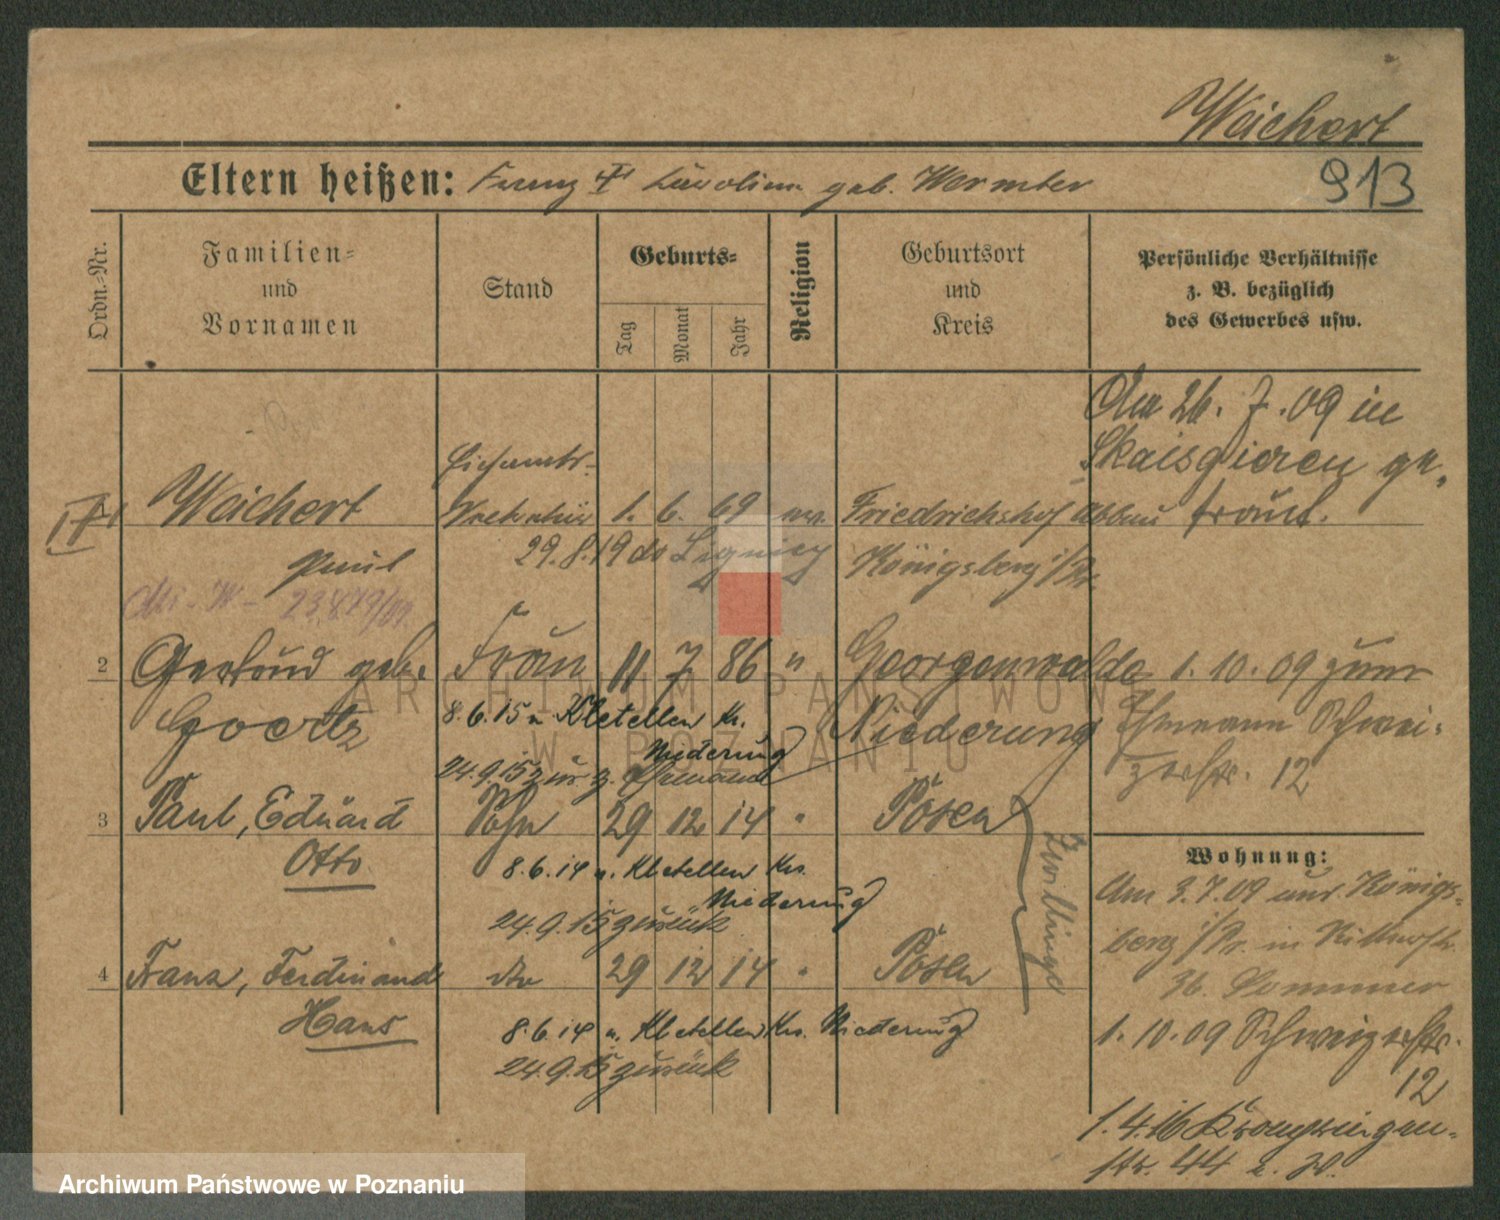 Weichert
913
Eltern heißen: Franz Karoline geb. Wermter
Ordn.-Nr.
Familien-
und
Vornamen
Stand
Geburts-
Tag
Monat
Jahr
Religion
Geburtsort
und
Kreis
Persönliche Verhältnisse
z. B. bezüglich
des Gewerbes usw.
Am 26. 7. 09 in
Skaisgirren ge-
traut.
Weichert
Paul
Eichamts-
1. 6. 69 ev.
29.8.19 do Legnicy
Friedrichshof Abbau
Königsberg i/Pr.
23879/09.
2
Gertrud geb.
Goertz
Frau 11 7 86 "
Georgenwalde
Niederung
1. 10. 09 zum
Ehemann Schwei-
zerstr. 12
8.6.15 n. Kletellen Kr.
Niederung
24.9.15 zur. z. Ehemann
3
Paul, Eduard
Otto
Sohn 29 12 14 "
Posen
8.6.14 n. Kletellen Krs.
Niederung
24.9.15 zurück
4
Franz, Ferdinand
Hans
dto 29 12 14 "
Posen
Zwillinge
8.6.14 n. Kletellen Krs. Niederung
24.9.15 zurück
Wohnung:
Am 3.7.09 aus Königs-
berg i/Pr. in
36. Sommer
1. 10. 09 Schweizerstr.
12
1.4.16 Kronprinzen-
str. 44
ARCHIWUM PAŃSTWOWE
W POZNANIU
Archiwum Państwowe w Poznaniu